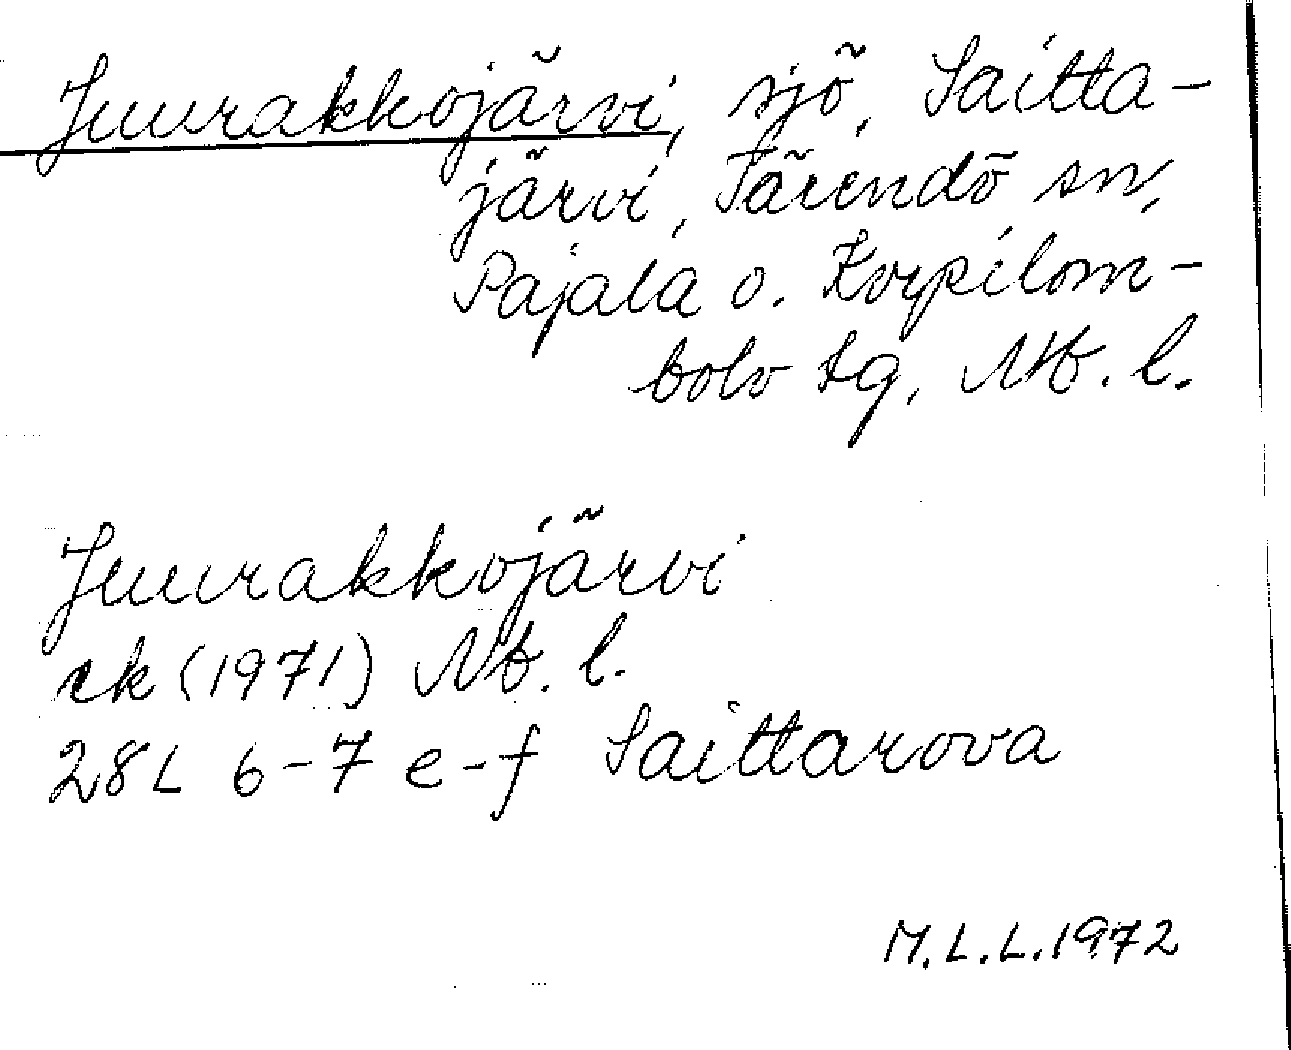 Juurakkojärvi, sjö, Saitta-
järvi, Tärendö sn,
Pajala o. Korpilom-
bolo tg, Nb. l.
Juurakkojärvi
ek (1971) Nb. l.
28L 6-7 e-f Saittarova
M.L.L.1972